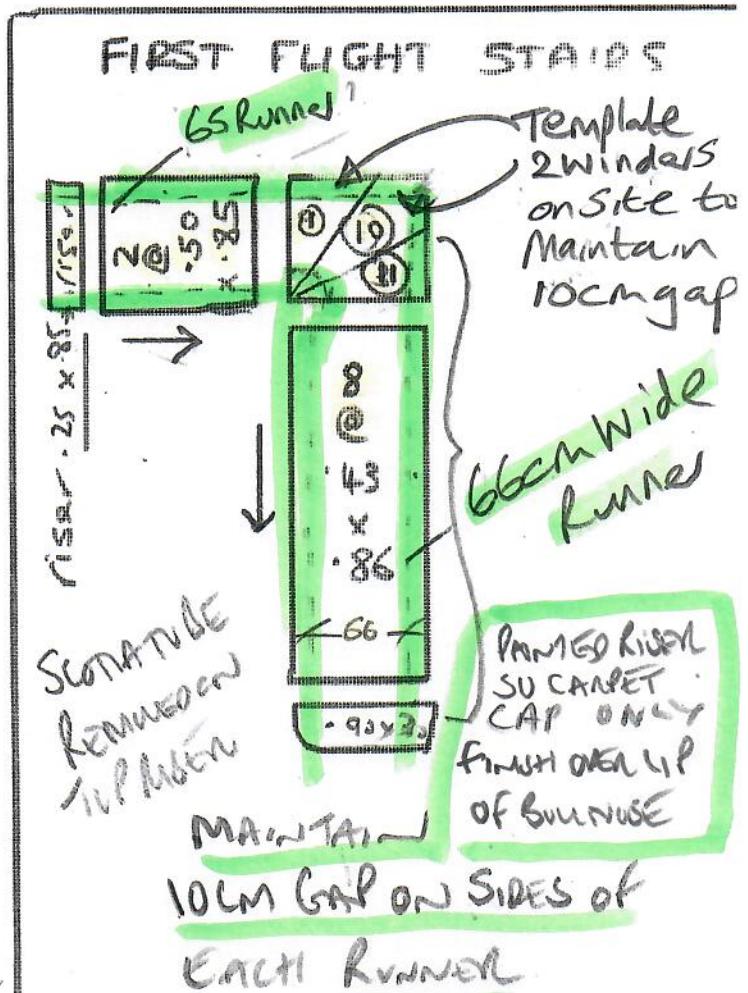 FIRST FLIGHT STAIRS
65 Runner
Template
2 winders
on site to
Maintain
10cm gap
riser
2@
.50
x .85
9
10
11
riser .25 x .85
8
@
.43
x
.86
66
66cm Wide
Runner
REMOVED ON
TOP RISER
.90 x
PAINTED RISER
SO CARPET
CAP ONLY
FINISH OVER LIP
OF BULLNOSE
MAINTAIN
10CM GAP ON SIDES OF
EACH RUNNER